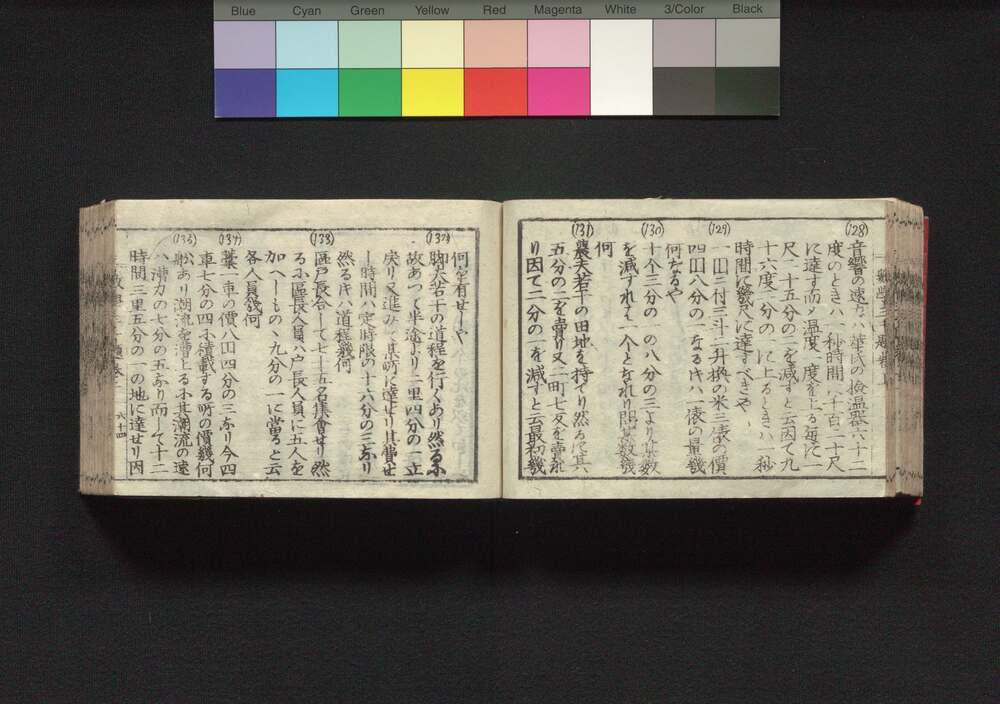 Blue Cyan Green Yellow Red Magenta White 3/Color Black
(128)
音響の速力ハ華氏の撿温器六十二
度のときハ一秒時間ニ千百二十尺
に達す而〆温度一度を上る毎に一
尺二十五分の二を減すと云因て九
十六度 分の に上るときハ一秒
時間に幾尺に達すべきや
(129)
一田三村三斗 升換の米三俵の價
四田八分の一なる㆑ハ一俵の量幾
何なるや
(130)
十个三分の の八分の三より某数
を減すれハ一个となれり即某数幾
何
(131)
農夫若干の田地を持てり然るに其
五分の二を賣り又二町七反を賣れ
り因て二分の一を減すと云最初幾
何を有せしや
(132)
脚夫若干の道程を行くあり然るふ
故あつて半途より二里四分の一立
戻り又進み 某所に達せり其費せ
し時間ハ定時限の十六分の三なり
然る㆑ハ道程幾何
(133)
區戸長合して七十五名集會せり然
るふ區長人員ハ戸長人員に五人を
加へしもの 九分の一に當ると云
各人員幾何
(134)
藁一車の價八田四分の三なり今四
車七分の四を積載する時の價幾何
(135)
舩あり潮流を漕上る不其潮流の速
ハ漕力の七分の五なり而して十二
時間三里五分の一の地に達せり因
六十四